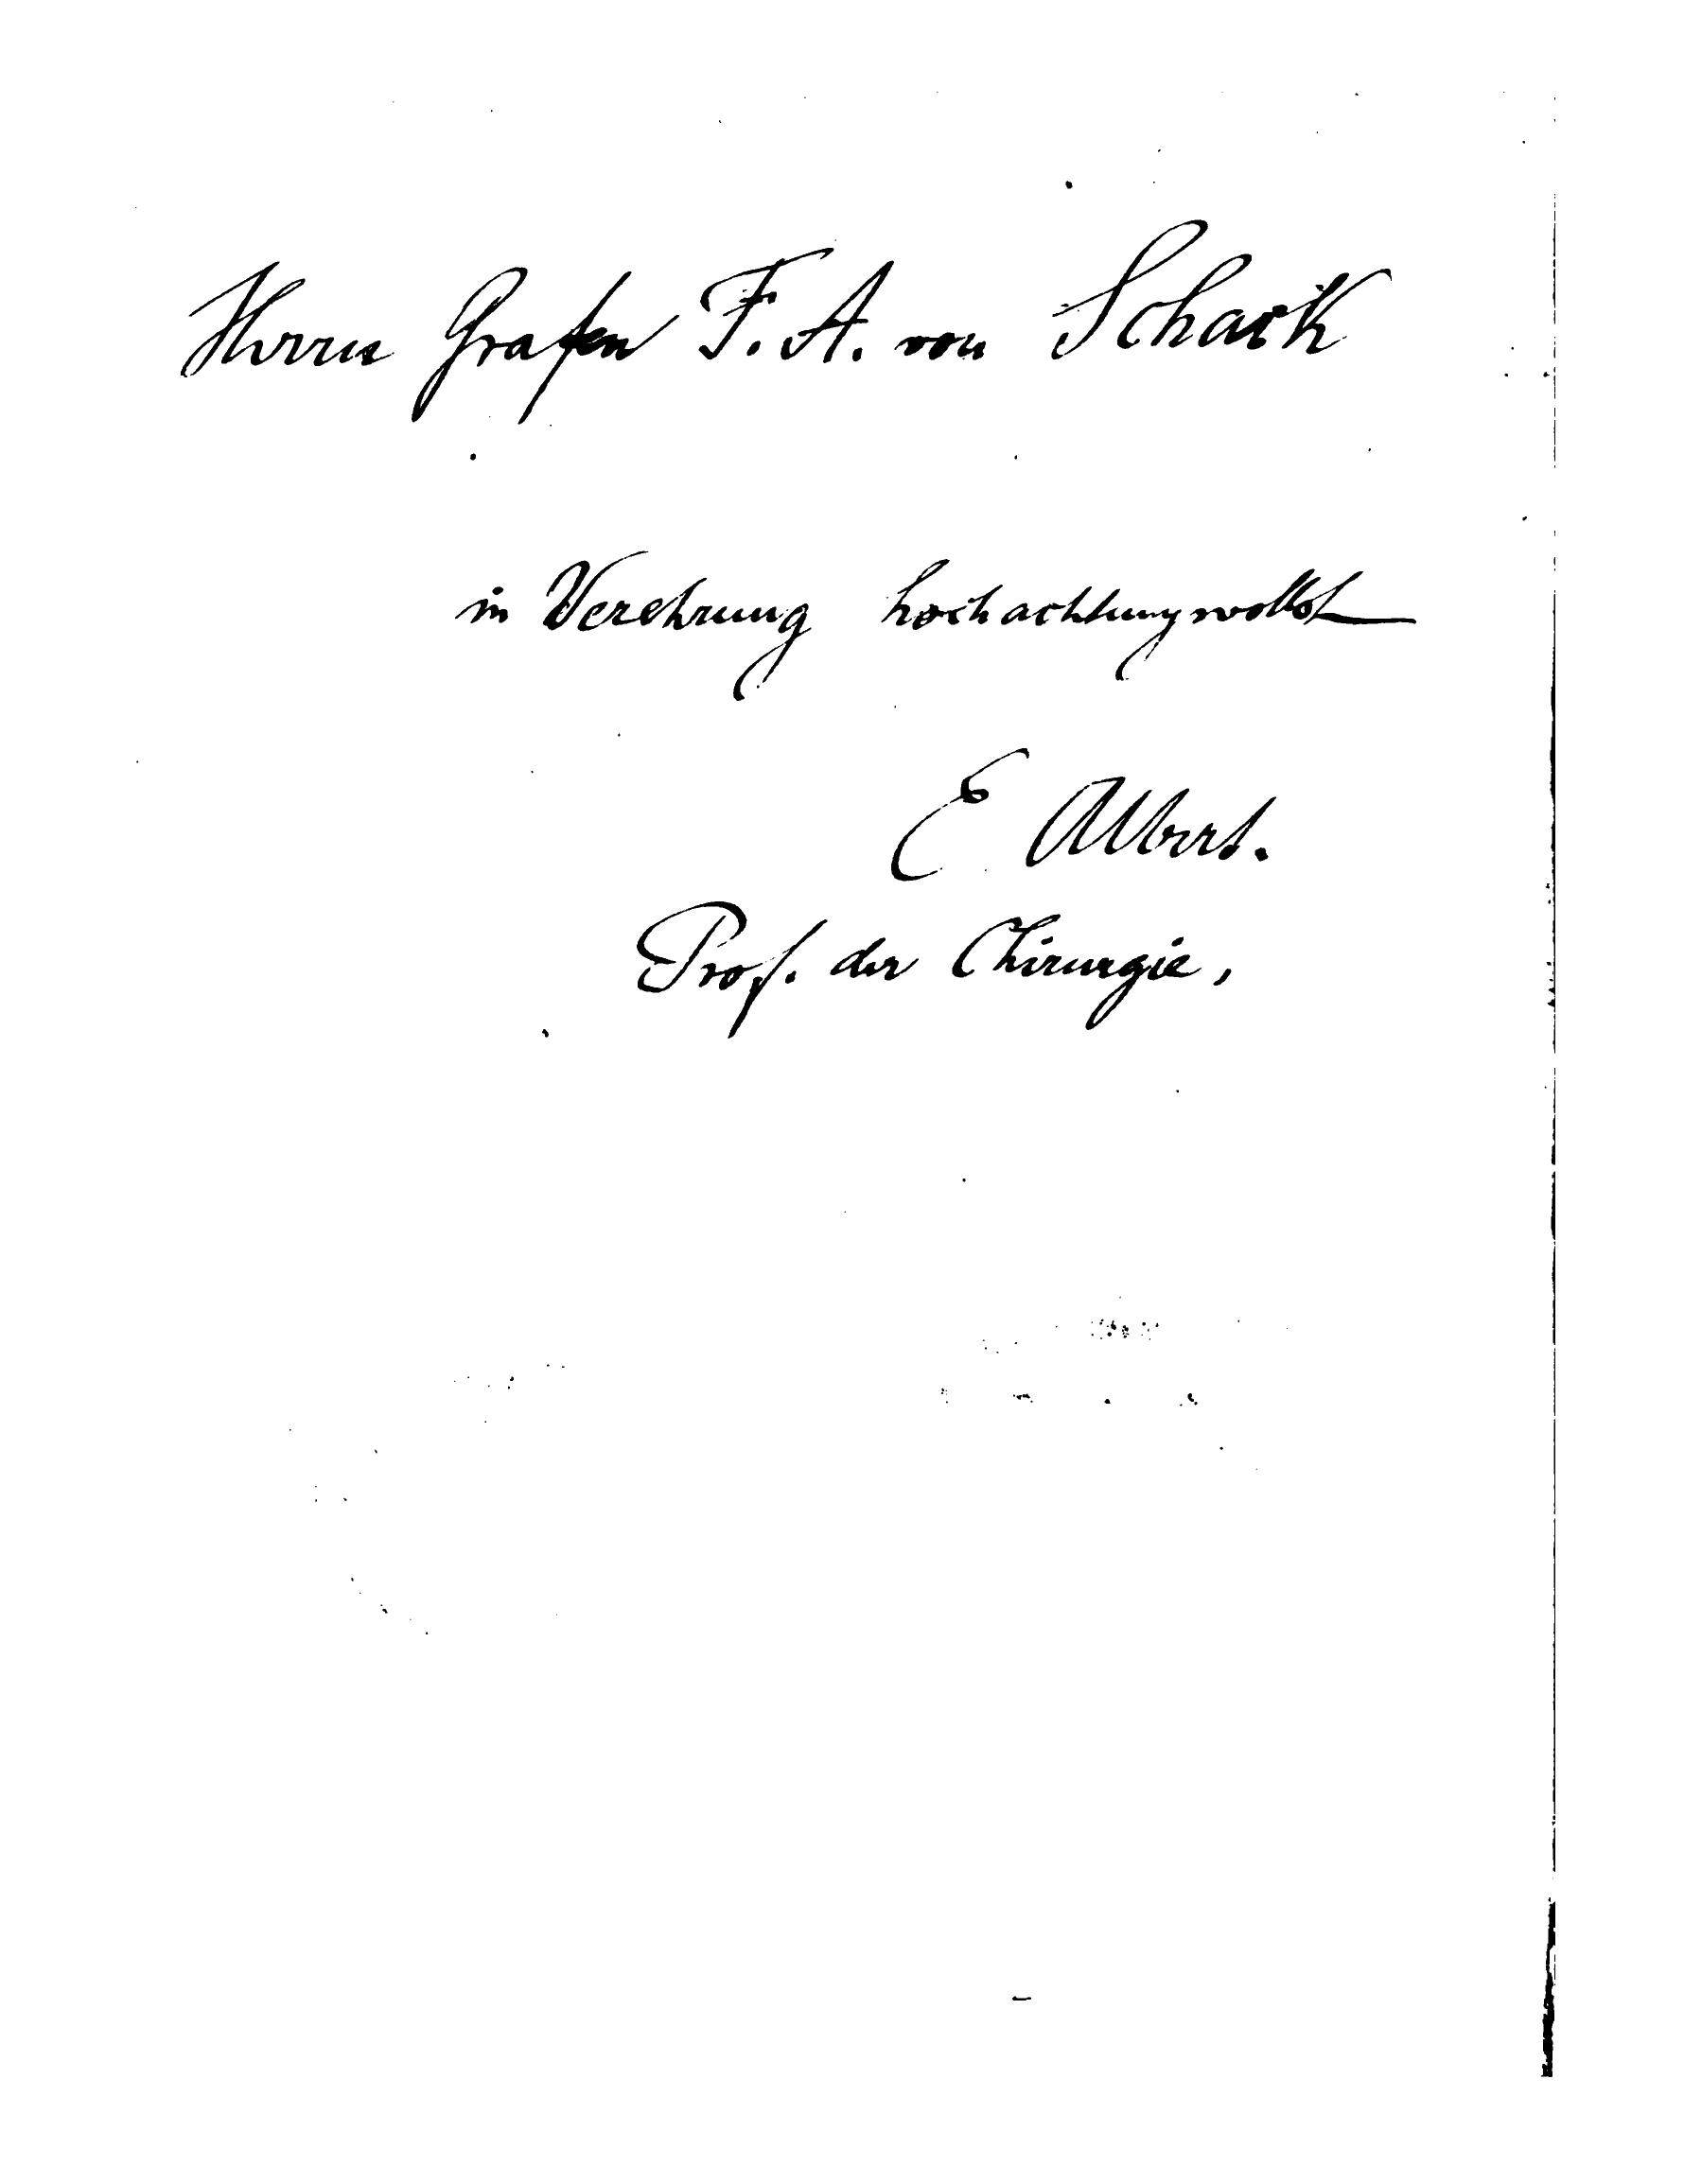 Herrn Grafen F. A. von Schack
in Verehrung hochachtungsvollst
E Albert.
Prof. der Chirurgie,